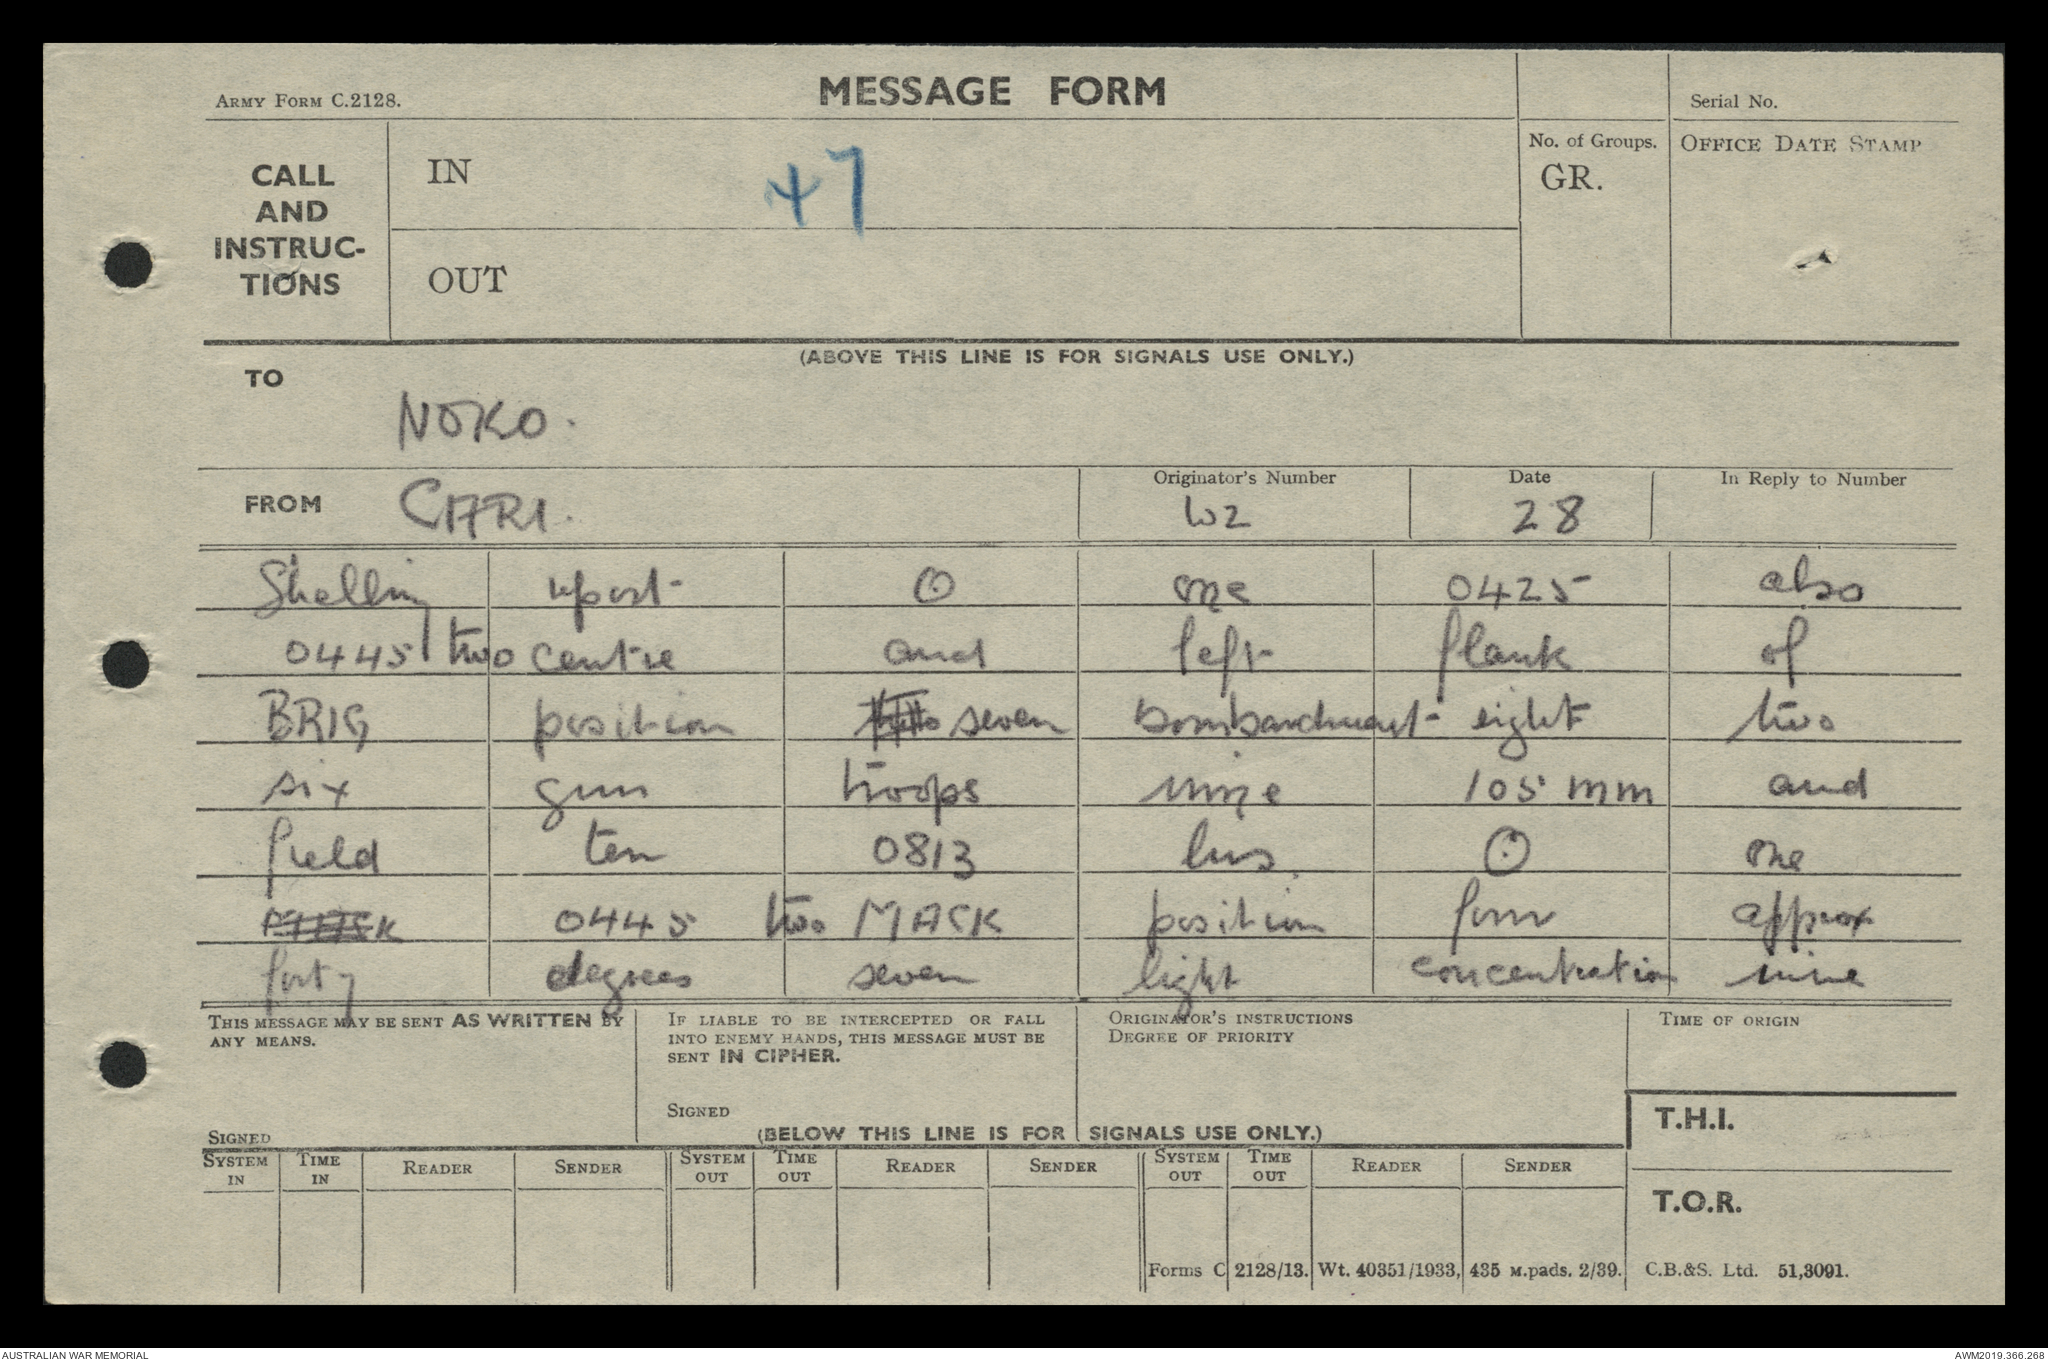 ARMY FORM C.2128.
MESSAGE FORM
Serial No.
CALL
AND
INSTRUC-
TIONS
IN
47
OUT
No. of Groups.
GR.
OFFICE DATE STAMP
(ABOVE THIS LINE IS FOR SIGNALS USE ONLY.)
TO
NOKO.
FROM
CIFRI.
Originator's Number
W2
Date
28
In Reply to Number
Shelling report ⊙ one 0425 also
0445 two centre and left flank of
BRIG position seven bombardment eight two
six gun troops nine 105 mm and
field ten 0813 hrs ⊙ one
0445 two MACK position from approx
forty degrees seven light concentration nine
THIS MESSAGE MAY BE SENT AS WRITTEN BY
ANY MEANS.
SIGNED
IF LIABLE TO BE INTERCEPTED OR FALL
INTO ENEMY HANDS, THIS MESSAGE MUST BE
SENT IN CIPHER.
SIGNED
ORIGINATOR'S INSTRUCTIONS
DEGREE OF PRIORITY
TIME OF ORIGIN
(BELOW THIS LINE IS FOR SIGNALS USE ONLY.)
T.H.I.
SYSTEM IN TIME IN READER SENDER SYSTEM OUT TIME OUT READER SENDER SYSTEM OUT TIME OUT READER SENDER
T.O.R.
Forms C 2128/13. Wt. 40351/1933. 435 M.pads. 2/39. C.B.&S. Ltd. 51,3091.
AUSTRALIAN WAR MEMORIAL
AWM2019.366.268